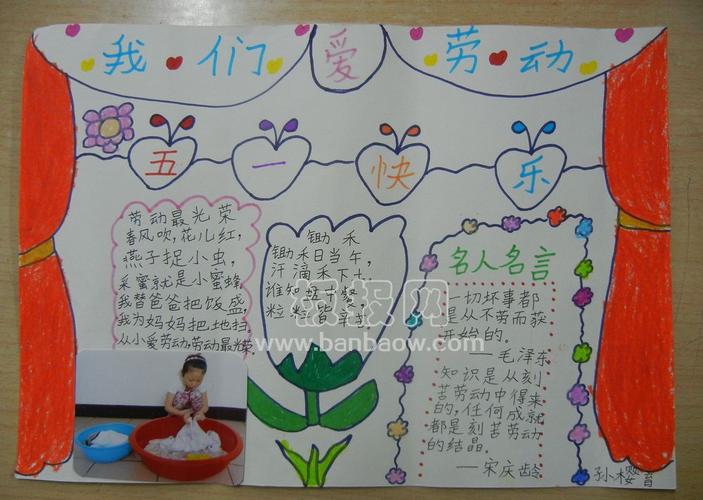 我们爱劳动
五一快乐
劳动最光荣
春风吹,花儿红,
燕子捉小虫,
采蜜就是小蜜蜂,
我替爸爸把饭盛,
我为妈妈把地扫,
从小爱劳动,劳动最光荣.
锄禾
锄禾日当午,
汗滴禾下土,
谁知盘中餐,
粒粒皆辛苦
名人名言
一切坏事都
是从不劳而获
开始的。
——毛泽东
知识是从刻
苦劳动中得来
的,任何成就
都是刻苦劳动
的结晶。
——宋庆龄
孙樱育
www.banbaow.com